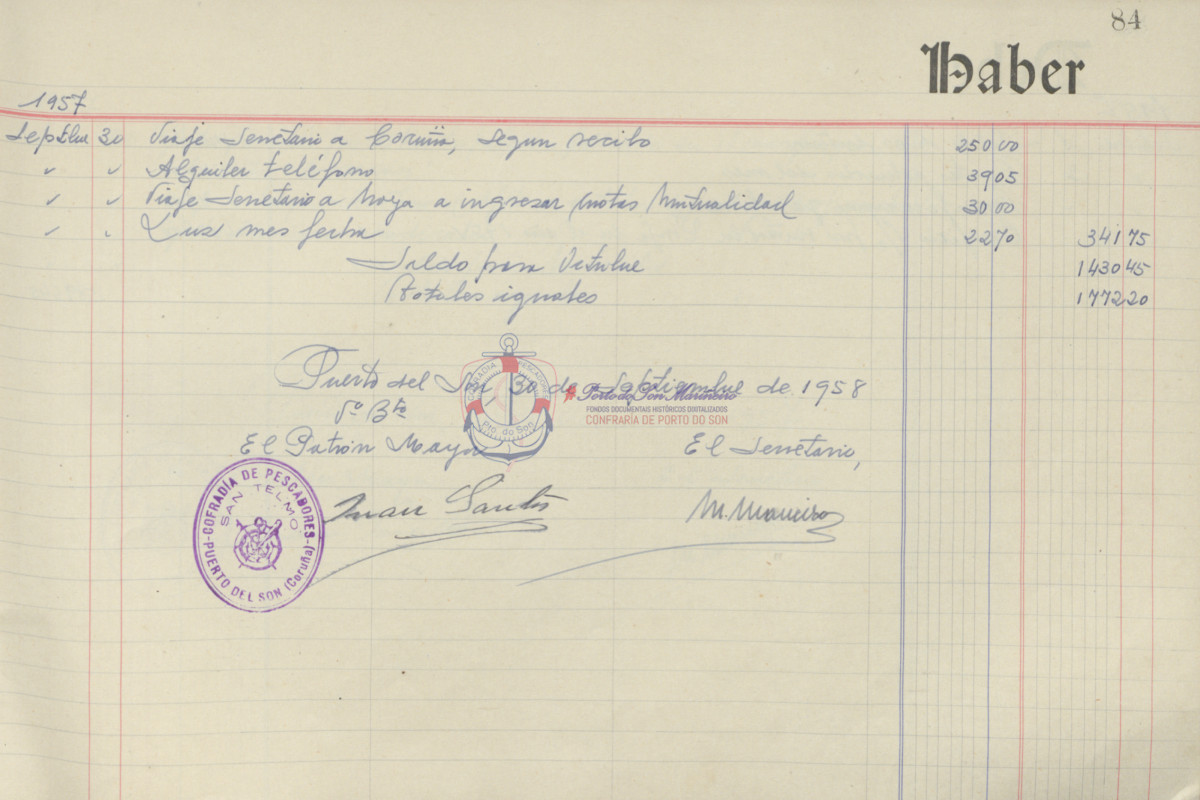 84
Haber
1957
Septbre 30 Viaje Secretario a Coruña, segun recibo 250 00
" " Alquiler teléfono 39 05
" " Viaje Secretario a Noya a ingresar cuotas Mutualidad 30 00
" " Luz mes fecha 22 70 341 75
Saldo para Octubre 1430 45
Totales iguales 1772 20
Puerto del Son 30 de Septiembre de 1958
Vº Bº
El Patrón Mayor El Secretario,
Juan Santos M. Maneiro
COFRADIA DE PESCADORES
SAN TELMO
PUERTO DEL SON (Coruña)
COFRADIA PESCADORES
Pto. do Son
Porto do Son Mariñeiro
FONDOS DOCUMENTAIS HISTÓRICOS DIXITALIZADOS
CONFRARÍA DE PORTO DO SON